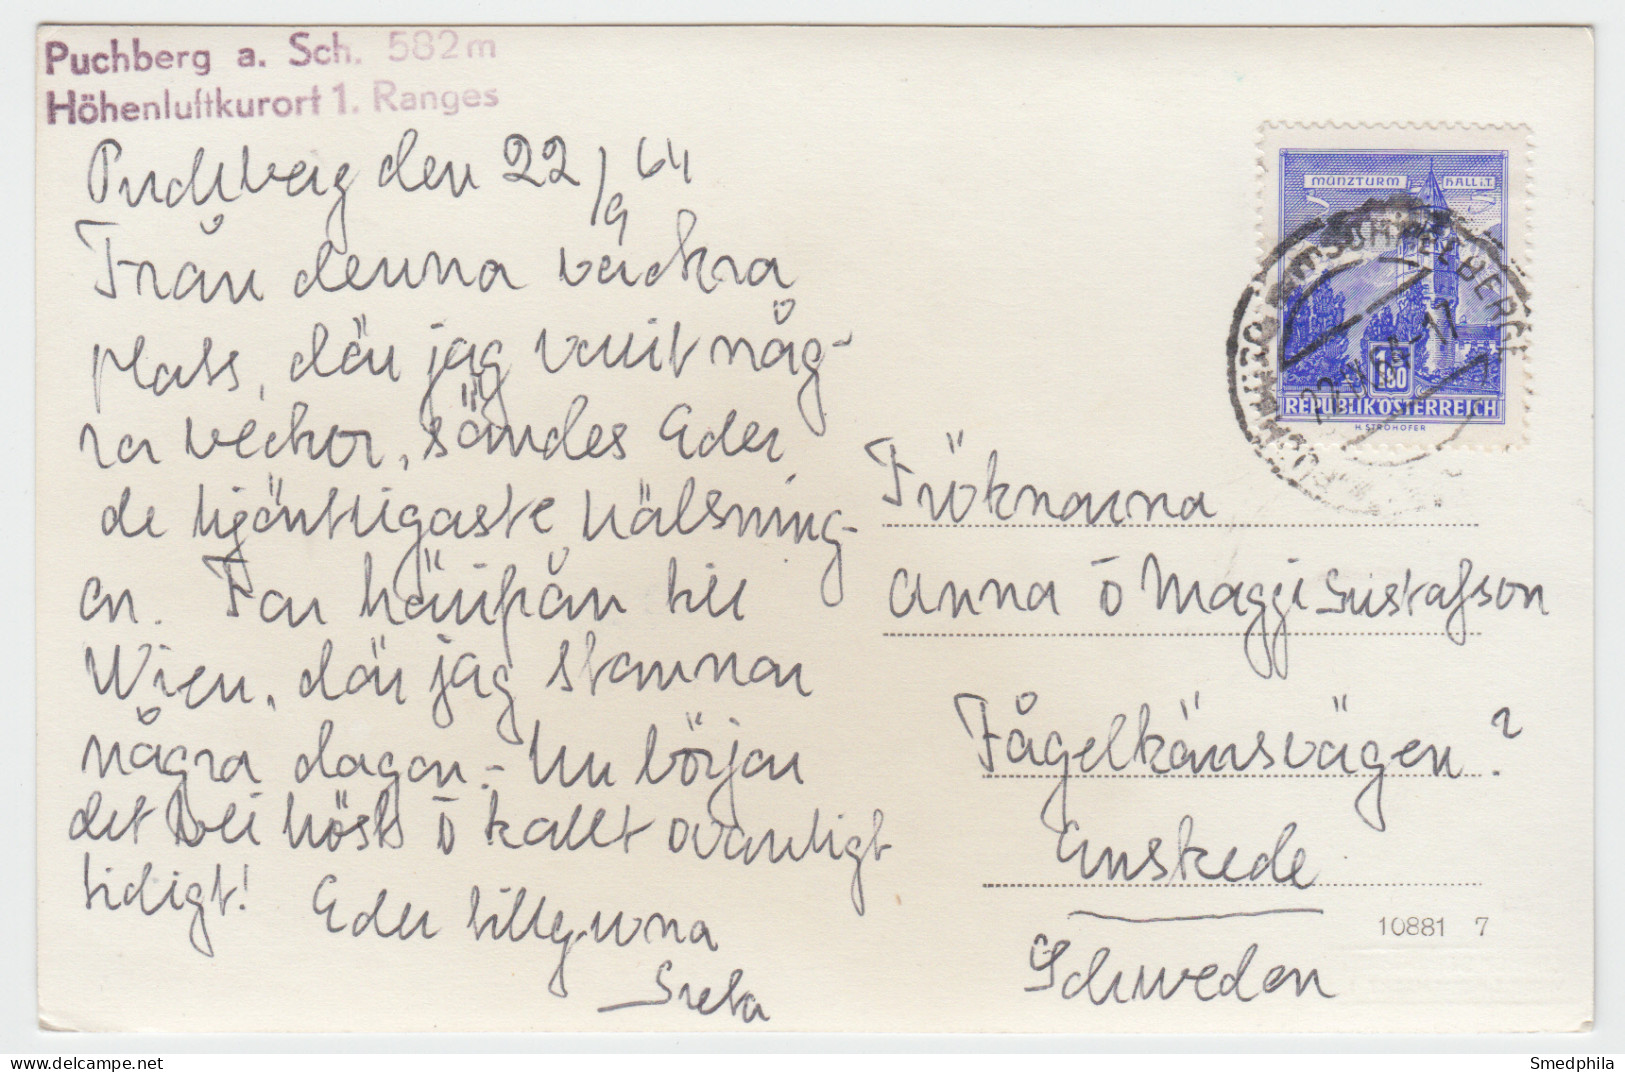 Puchberg a. Sch. 582m
Höhenluftkurort 1. Ranges
Puchberg den 22/9 64
Från denna vackra
plats, där jag varit någ-
ra veckor, sändes Eder
de hjärtligaste hälsning-
ar. Far härifrån till
Wien, där jag stannar
några dagar. - Nu börjar
det bli höst o kallt ovanligt
tidigt! Eder tillgivna
Greta
MÜNZTURM HALL i.T.
1S 80
REPUBLIK ÖSTERREICH
H. STROHOFER
Fröknarna
Anna o Maggie Gustafson
Fågelkärrsvägen?
Enskede
Schweden
10881 7
Smedphila